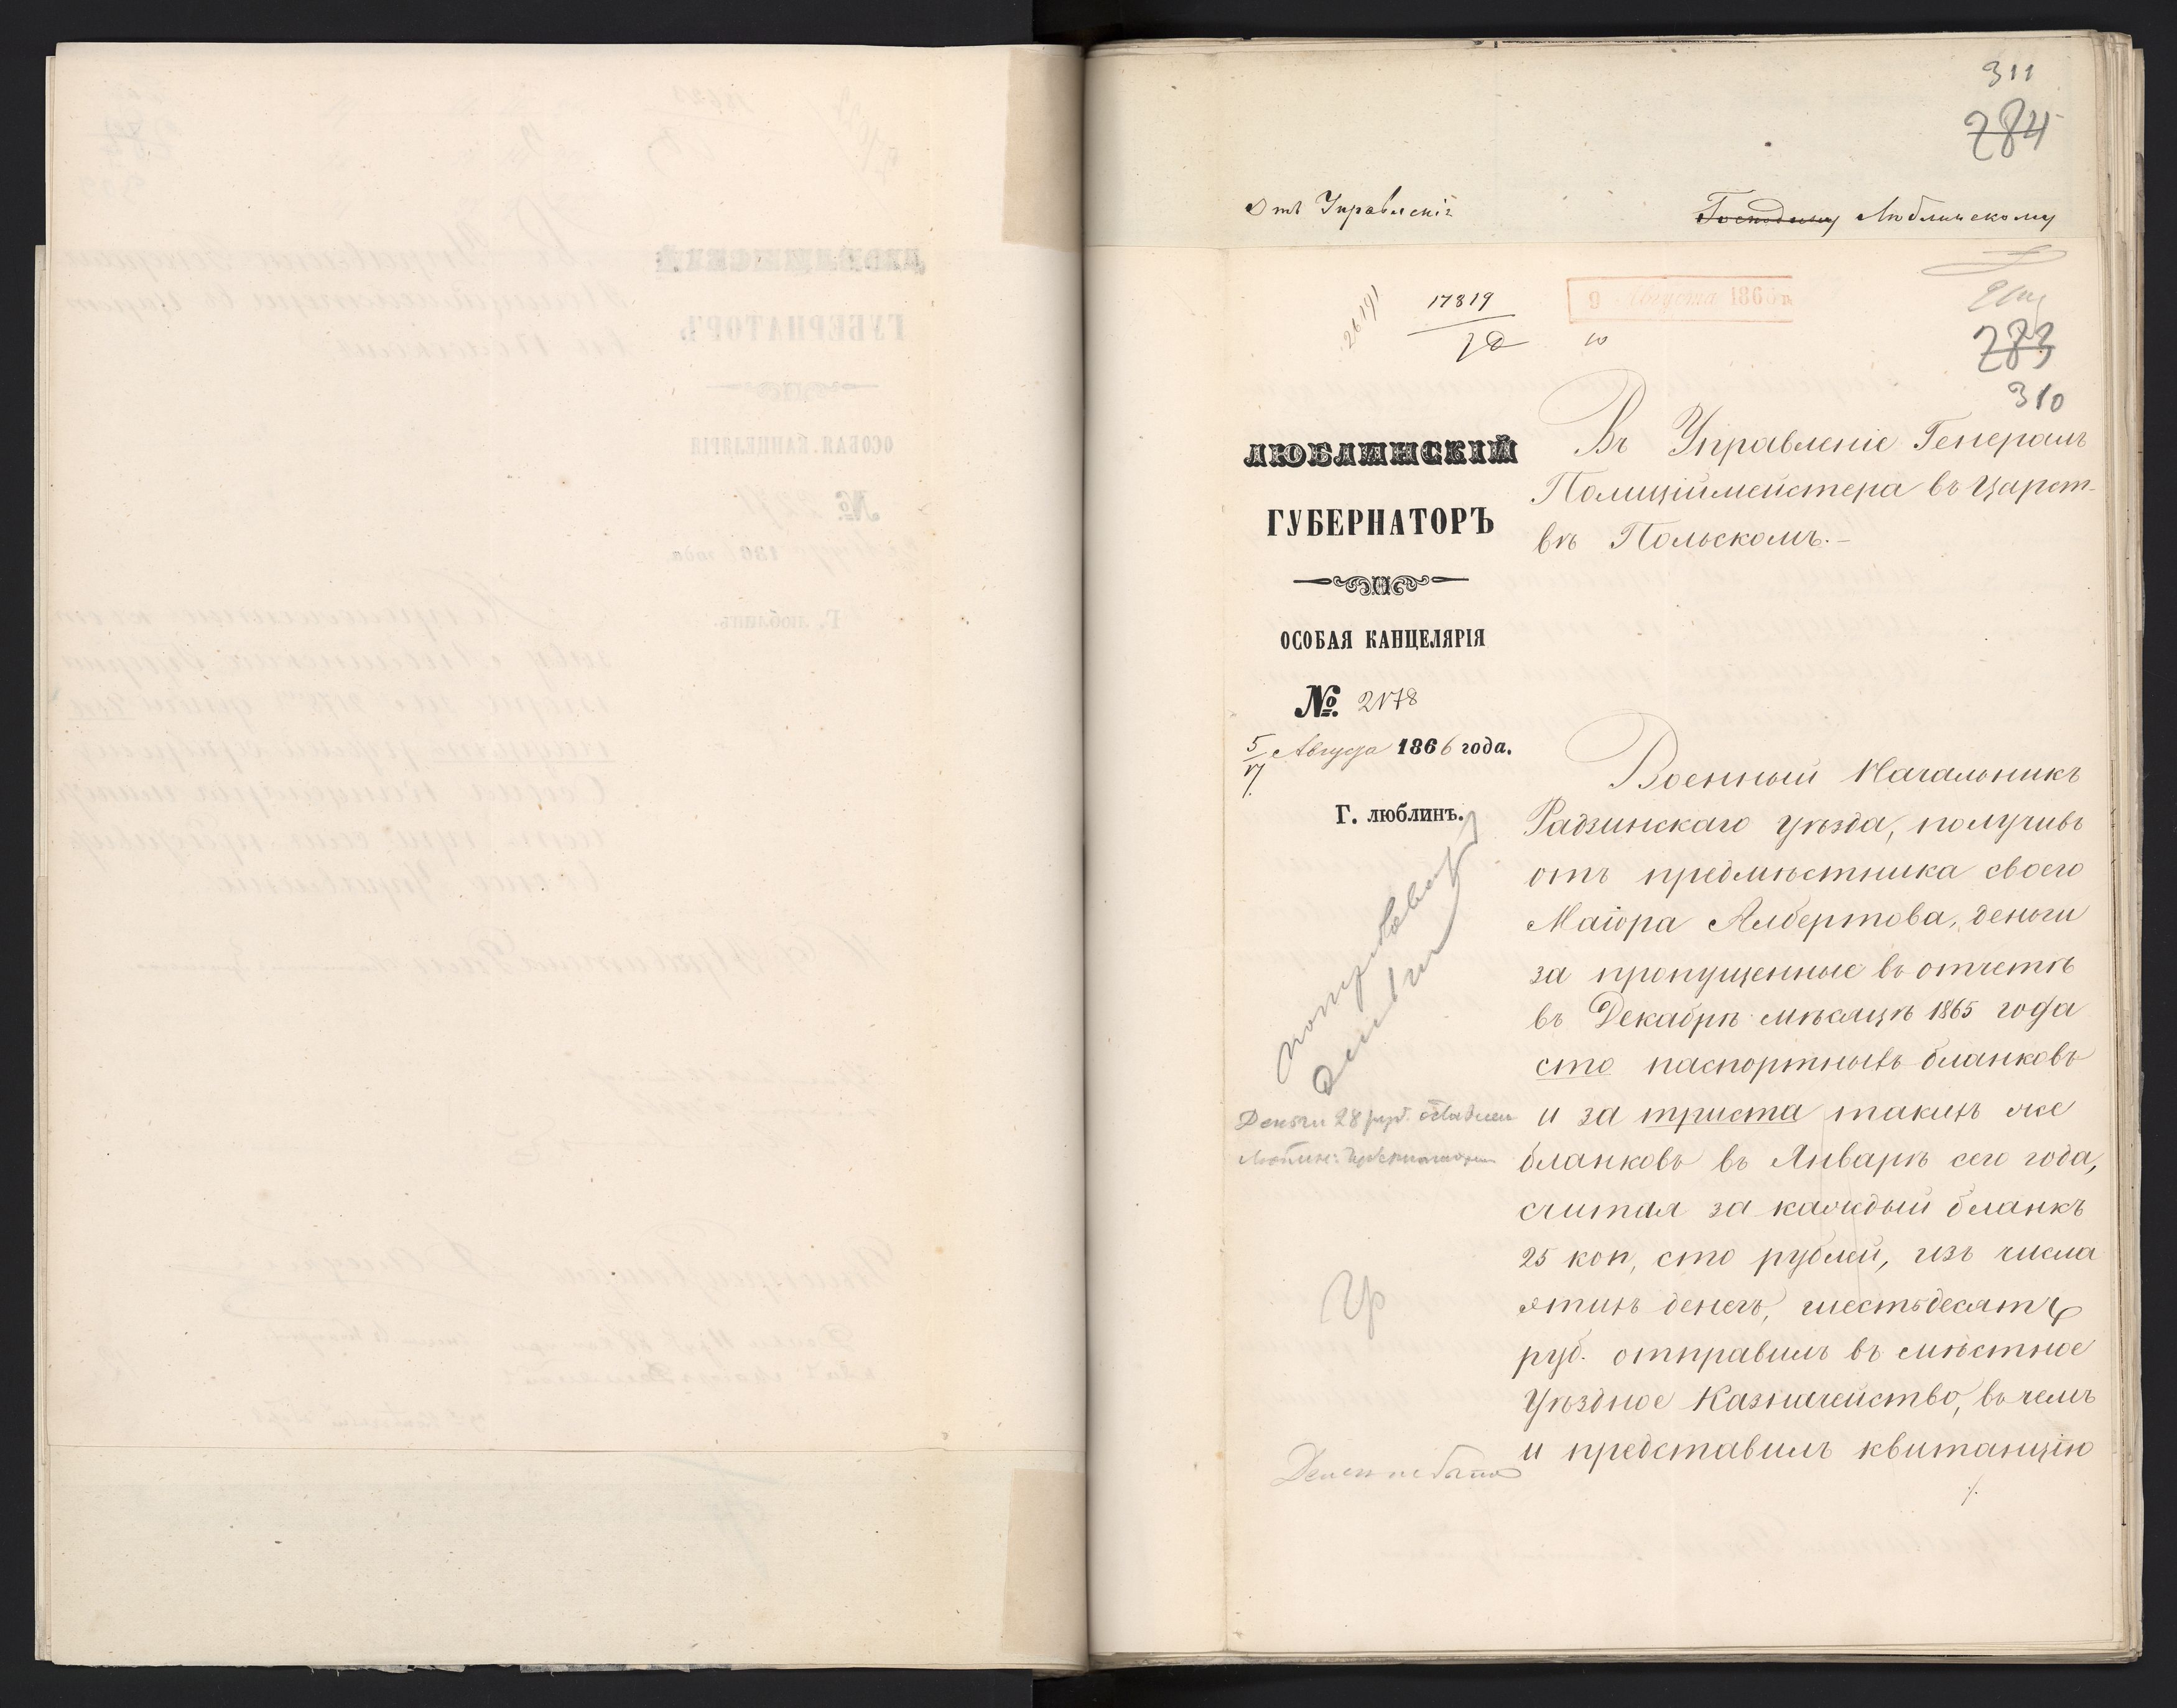 311
284
Отъ Управленія
Господину Люблинскому
26191
17819
9 Августа 1866 г.
283
310
Въ Управленіе Генералъ
Полиціймейстера въ Царст-
вѣ Польскомъ.-
ЛЮБЛИНСКІЙ
ГУБЕРНАТОРЪ
ОСОБАЯ КАНЦЕЛЯРІЯ
№ 2178
5/17 Августа 1866 года.
Г. ЛЮБЛИНЪ.
Военный Начальникъ
Радзинскаго уѣзда, получивъ
отъ предмѣстника своего
Маіора Албертова, деньги
за пропущенные въ отчетѣ
въ Декабрѣ мѣсяцѣ 1865 года
сто паспортныхъ бланковъ
и за триста такихъ же
бланковъ въ Январѣ сего года,
считая за каждый бланкъ
25 коп, сто рублей, изъ числа
этихъ денегъ, шестьдесятъ
руб. отправилъ въ мѣстное
Уѣздное Казначейство, въ чемъ
и представилъ квитанцію
./.
Деньги 28 руб.
Денег не было